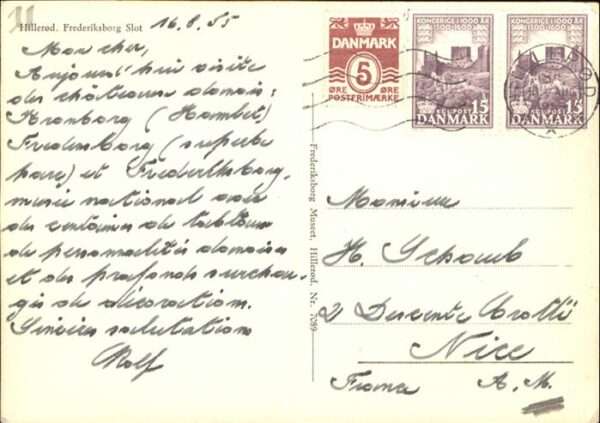 Hillerød. Frederiksborg Slot
16.8.55
Mon cher,
Aujourd'hui visite
des châteaux danois:
Kronborg (Hamlet)
Fredensborg (superbe
parc) et Frederiksborg,
musée national avec
des centaines de tableaux
de personnalités danoises
et des plafonds surchar-
gés de décoration.
Sincères salutations
Rolf
Frederiksborg Museet, Hillerød. Nr. 7089
DANMARK
5
ØRE ØRE
POSTFRIMÆRKE
KONGERIGE I 1000 ÅR
POST 15
DANMARK
KONGERIGE I 1000 ÅR
POST 15
DANMARK
Monsieur
H. Schaub
2 Descente
Nice
France A.M.